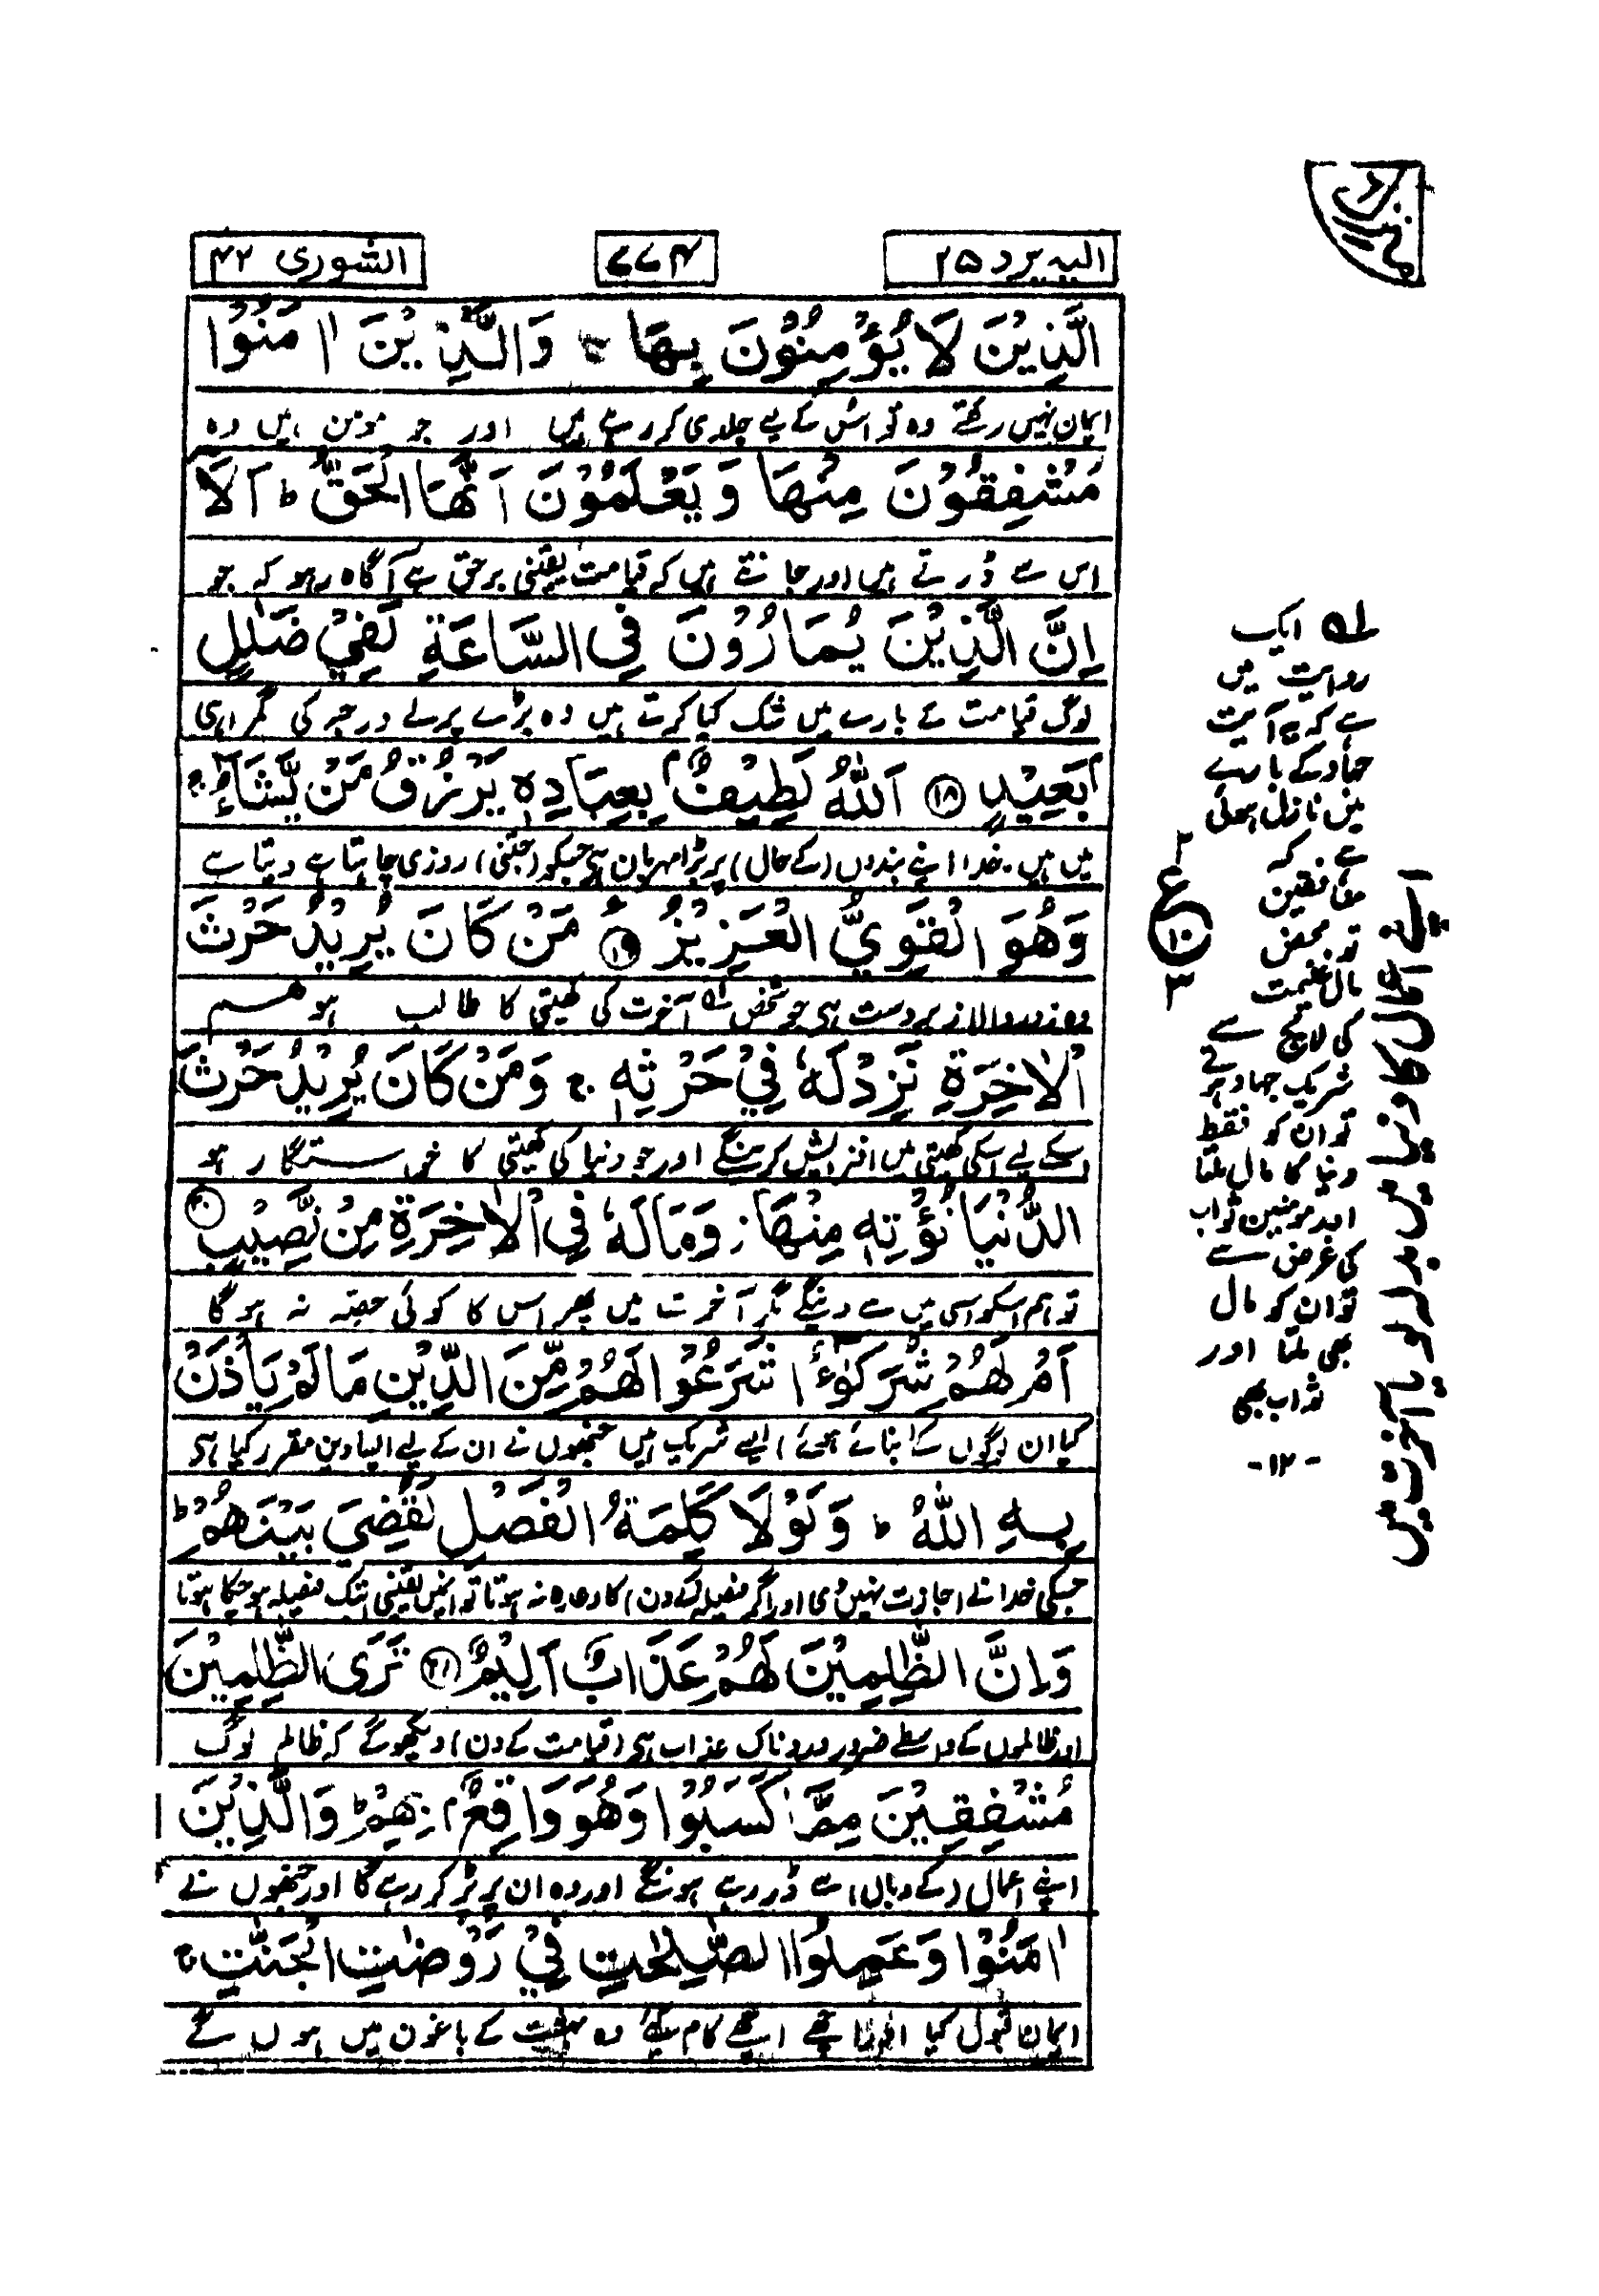 الیہ یرد ۲۵
۷۷۴
الشوری ۴۲
الَّذِيْنَ لَا يُؤْمِنُوْنَ بِهَا ۚ وَالَّذِيْنَ اٰمَنُوْا
ایمان نہیں رکھتے وہ تو اس کے لیے جلدی کر رہے ہیں اور جو مومن ہیں وہ
مُشْفِقُوْنَ مِنْهَا وَيَعْلَمُوْنَ اَنَّهَا الْحَقُّ ؕ اَلَآ
اس سے ڈرتے ہیں اور جانتے ہیں کہ قیامت یقینی برحق ہے آگاہ رہو کہ جو
اِنَّ الَّذِيْنَ يُمَارُوْنَ فِى السَّاعَةِ لَفِيْ ضَلٰلٍۭ
لوگ قیامت کے بارے میں شک کیا کرتے ہیں وہ بڑے پرلے درجہ کی گمراہی
بَعِيْدٍ ۱۸ اَللّٰهُ لَطِيْفٌۢ بِعِبَادِهٖ يَرْزُقُ مَنْ يَّشَآءُ ۚ
میں ہیں۔ خدا اپنے بندوں (کے حال) پر بڑا مہربان ہی جسکو (جتنی) روزی چاہتا ہے دیتا ہے
وَهُوَ الْقَوِيُّ الْعَزِيْزُ ۱۹ مَنْ كَانَ يُرِيْدُ حَرْثَ
وہ زور والا زبردست ہی جو شخص ۵۱ آخرت کی کھیتی کا طالب ہو ہم
الْاٰخِرَةِ نَزِدْ لَهٗ فِيْ حَرْثِهٖ ۚ وَمَنْ كَانَ يُرِيْدُ حَرْثَ
اسکے لیے اسکی کھیتی میں افزایش کرینگے اور جو دنیا کی کھیتی کا خواستگار ہو
الدُّنْيَا نُؤْتِهٖ مِنْهَا ۙ وَمَا لَهٗ فِى الْاٰخِرَةِ مِنْ نَّصِيْبٍ ۲۰
تو ہم اسکو اسی میں سے دینگے مگر آخرت میں پھر اس کا کوئی حصّہ نہ ہوگا
اَمْ لَهُمْ شُرَكٰٓؤُا شَرَعُوْا لَهُمْ مِّنَ الدِّيْنِ مَا لَمْ يَاْذَنْۢ
کیا ان لوگوں کے (بنائے ہوئے) ایسے شریک ہیں جنھوں نے ان کے لیے ایسا دین مقرر کیا ہی
بِهِ اللّٰهُ ؕ وَلَوْلَا كَلِمَةُ الْفَصْلِ لَقُضِيَ بَيْنَهُمْ ؕ
جسکی خدا نے اجازت نہیں دی اور اگر فیصلہ (کے دن) کا وعدہ نہ ہوتا تو انمیں یقینی ابتک فیصلہ ہو چکا ہوتا
وَاِنَّ الظّٰلِمِيْنَ لَهُمْ عَذَابٌ اَلِيْمٌ ۲۱ تَرَى الظّٰلِمِيْنَ
اور ظالموں کے واسطے ضرور دردناک عذاب ہی (قیامت کے دن) دیکھو گے کہ ظالم لوگ
مُشْفِقِيْنَ مِمَّا كَسَبُوْا وَهُوَ وَاقِعٌۢ بِهِمْ ؕ وَالَّذِيْنَ
اپنے اعمال (کے وبال) سے ڈر رہے ہونگے اور وہ ان پر پڑ کر رہے گا اور جنھوں نے
اٰمَنُوْا وَعَمِلُوا الصّٰلِحٰتِ فِيْ رَوْضٰتِ الْجَنّٰتِ ۚ
ایمان قبول کیا اور اچھے اچھے کام کیے وہ بہشت کے باغوں میں ہوں گے
۵۱ ایک
روایت میں
ہے کہ یہ آیت
جہاد کے بارے
میں نازل ہوئی
ہے کہ
منافقین
تو محض
مال غنیمت
کی لالچ سے
شریک جہاد ہوتے
تو ان کو فقط
دنیا کا مال ملتا
اور مومنین ثواب
کی غرض سے
تو ان کو مال
بھی ملتا اور
ثواب بھی
-۱۲-
۲
ع
۱۰
۳
اپنے اعمال کا دنیا میں بدلہ لو یا آخرت میں